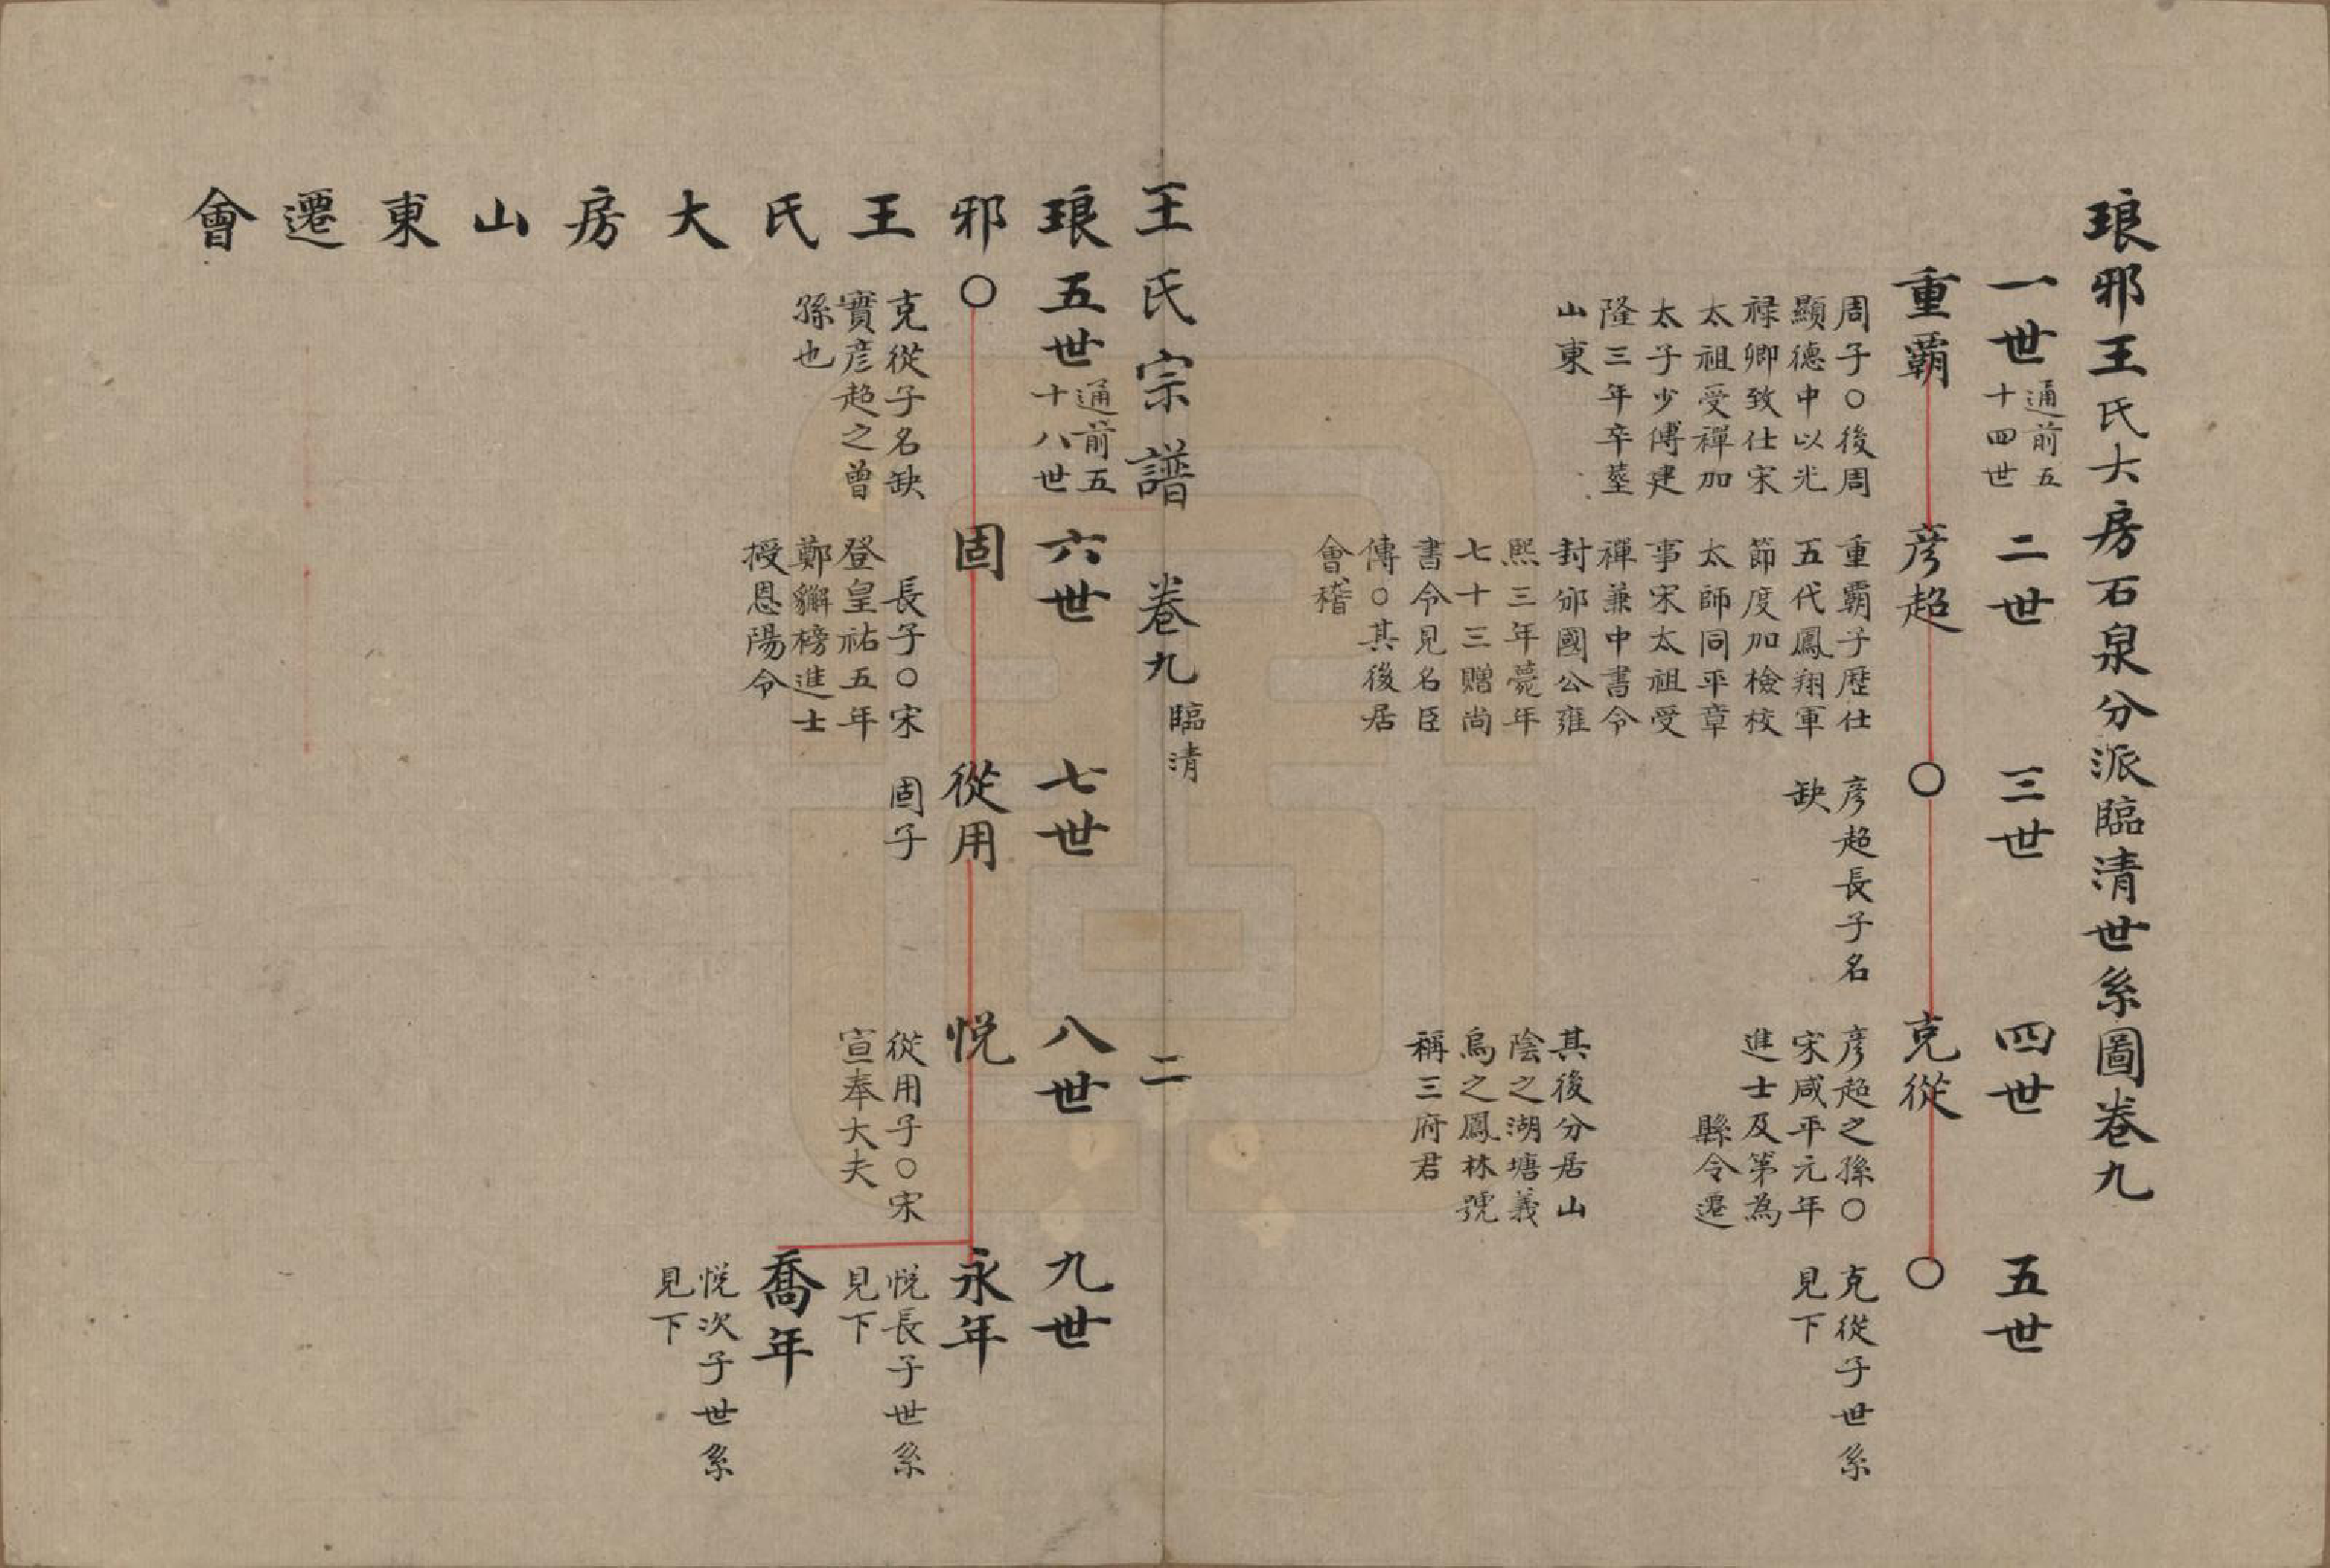 琅邪王氏大房石泉分派臨清世系圖卷九
一世
通前五
十四世
二世
三世
四世
五世
重霸
周子○後周
顯德中以光
祿卿致仕宋
太祖受禪加
太子少傅建
隆三年卒塟
山東
彥超
重霸子歷仕
五代鳳翔軍
節度加檢校
太師同平章
事宋太祖受
禪兼中書令
封邠國公雍
熙三年薨年
七十三贈尚
書令見名臣
傳○其後居
會稽
○
彥超長子名
缺
克從
彥超之孫○
宋咸平元年
進士及第為
縣令遷
其後分居山
陰之湖塘義
烏之鳳林號
稱三府君
○
克從子世系
見下
王氏宗譜
卷九
臨清
二
琅邪王氏大房山東遷會
五世
通前五
十八世
六世
七世
八世
九世
○
克從子名缺
實彥超之曾
孫也
固
長子○宋
登皇祐五年
鄭獬榜進士
授恩陽令
從用
固子
悅
從用子○宋
宣奉大夫
永年
悅長子世系
見下
喬年
悅次子世系
見下